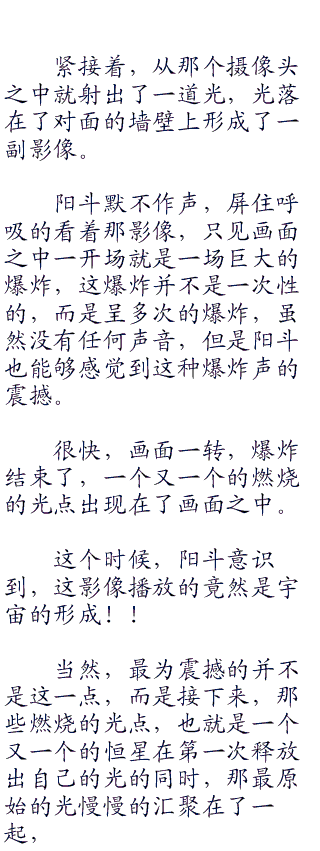 紧接着，从那个摄像头
之中就射出了一道光，光落
在了对面的墙壁上形成了一
副影像。
阳斗默不作声，屏住呼
吸的看着那影像，只见画面
之中一开场就是一场巨大的
爆炸，这爆炸并不是一次性
的，而是呈多次的爆炸，虽
然没有任何声音，但是阳斗
也能够感觉到这种爆炸声的
震撼。
很快，画面一转，爆炸
结束了，一个又一个的燃烧
的光点出现在了画面之中。
这个时候，阳斗意识
到，这影像播放的竟然是宇
宙的形成！！
当然，最为震撼的并不
是这一点，而是接下来，那
些燃烧的光点，也就是一个
又一个的恒星在第一次释放
出自己的光的同时，那最原
始的光慢慢的汇聚在了一
起，